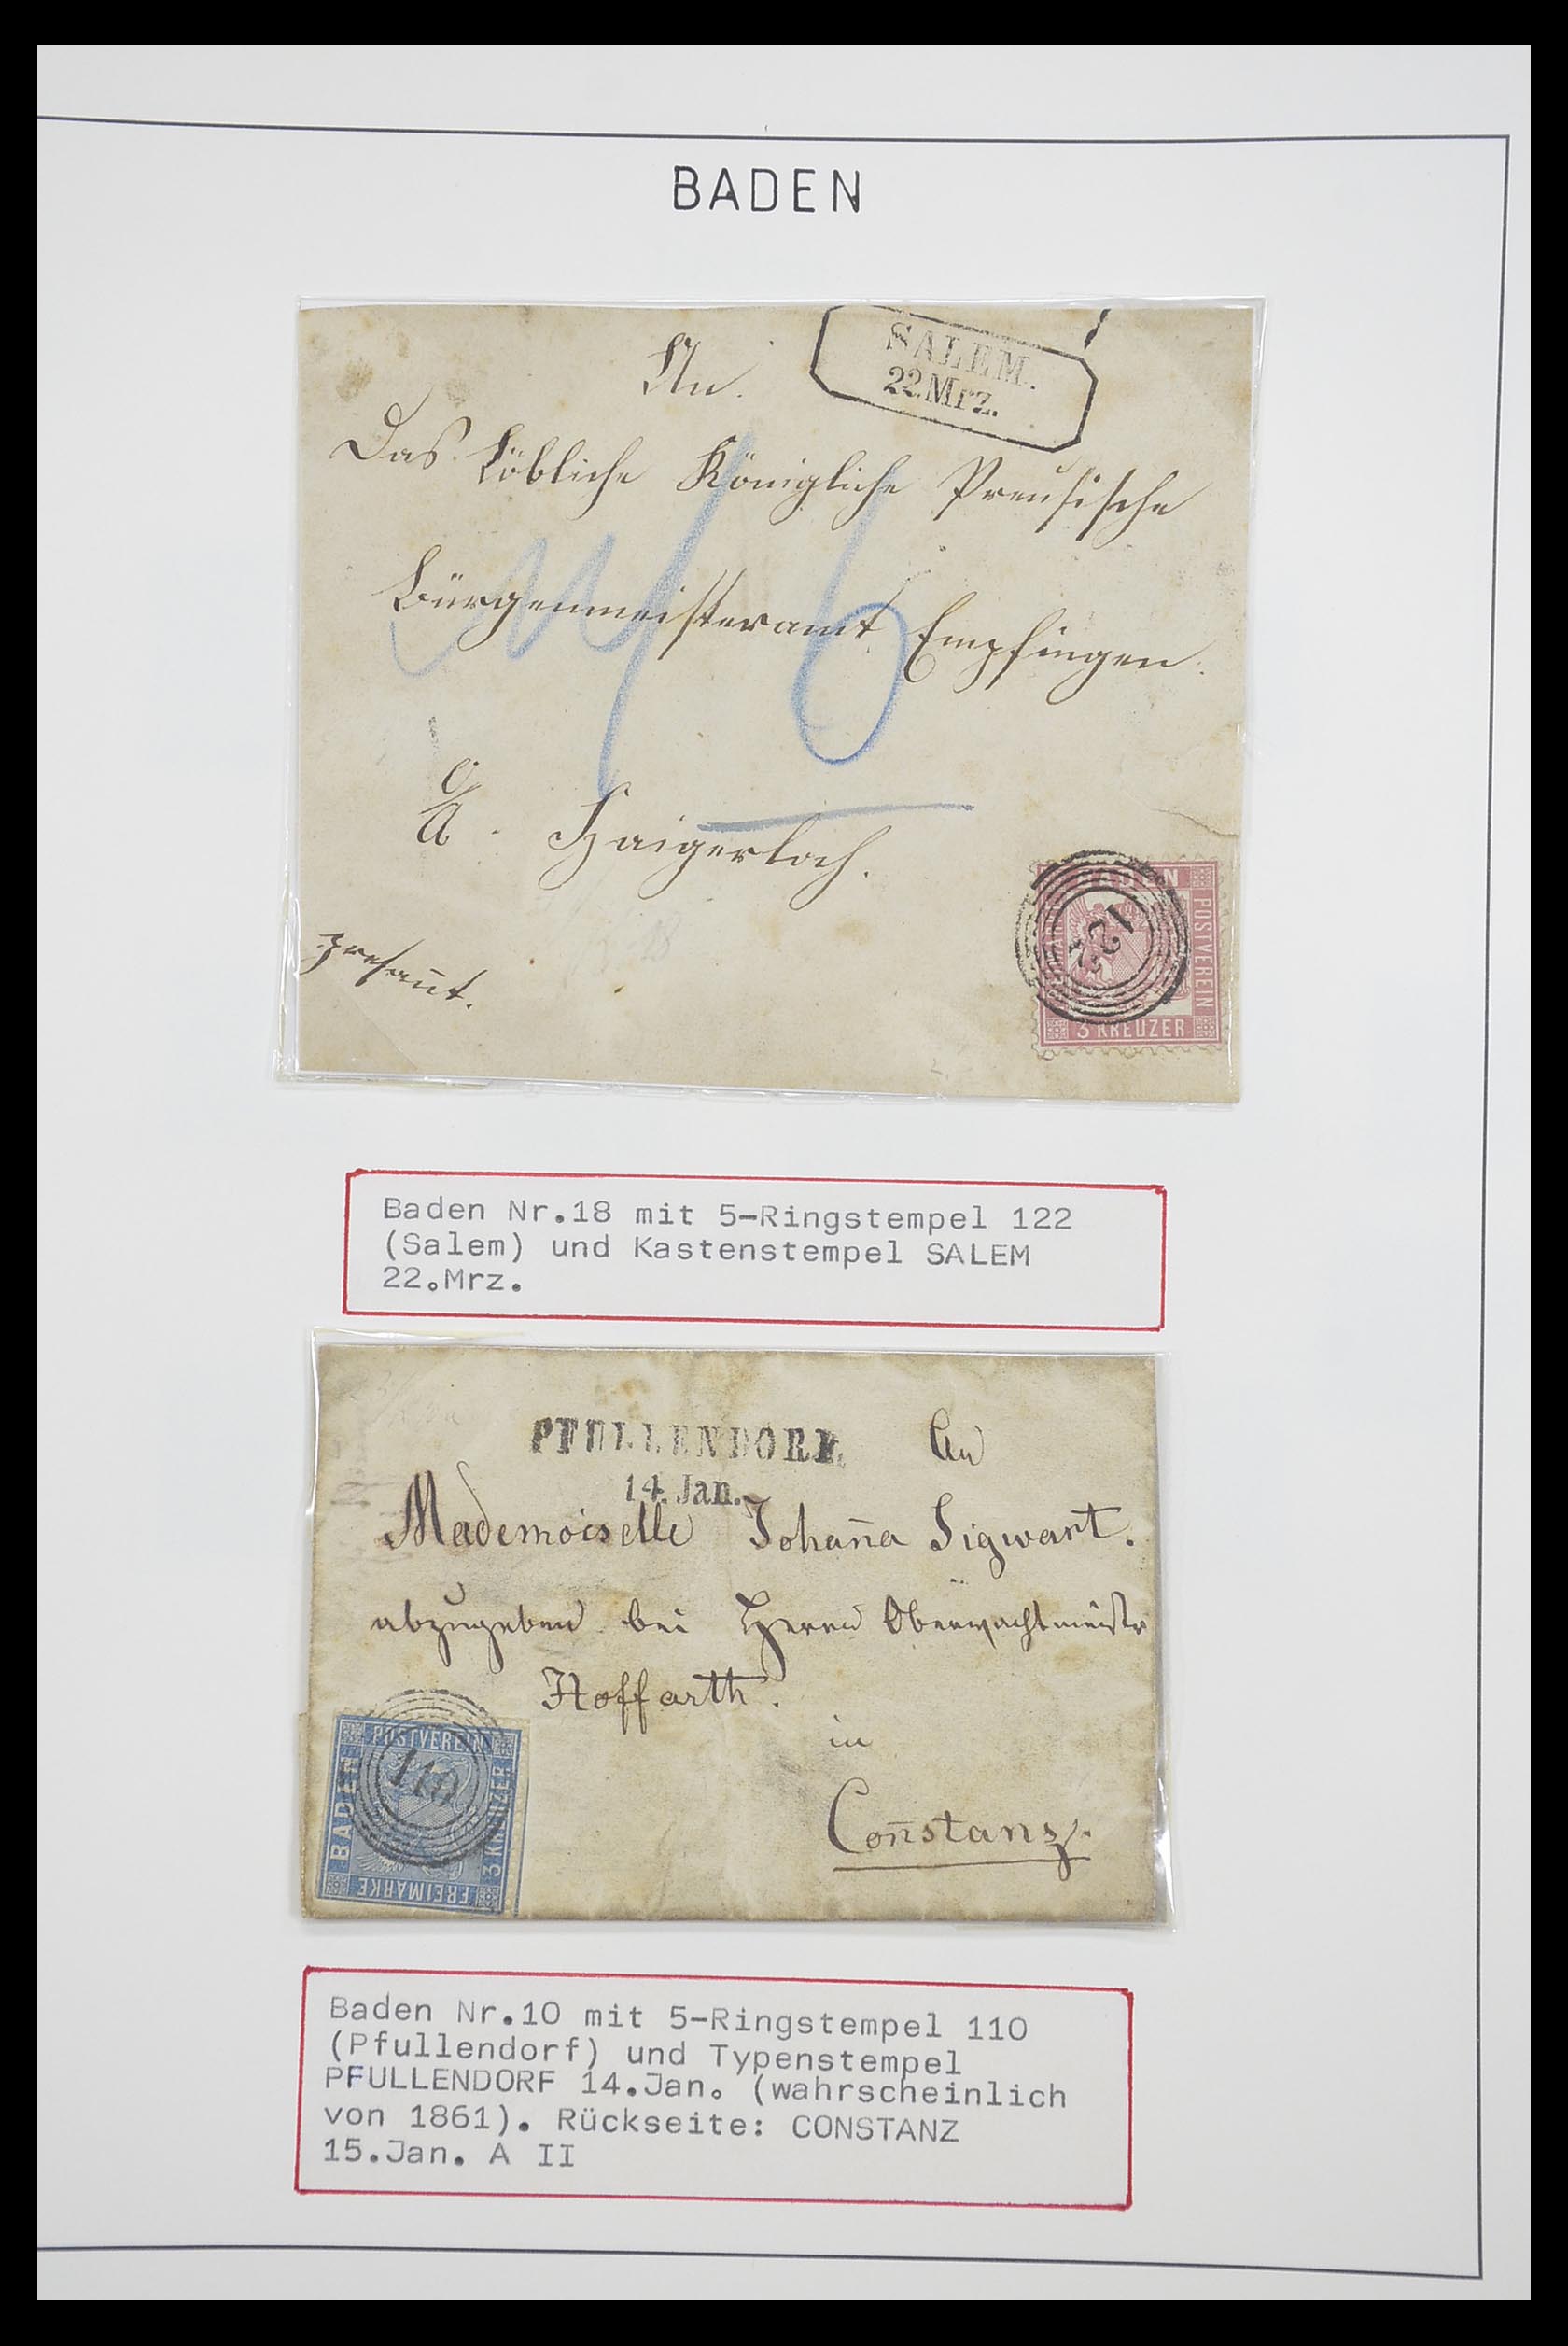 BADEN
SALEM.
22.Mrz.
An.
Das Löbliche Königliche Preusische
Bürgenmeisteramt Empfingen.
Haigerloch.
122
BADEN
POSTVEREIN
3 KREUZER
Baden Nr.18 mit 5-Ringstempel 122
(Salem) und Kastenstempel SALEM
22.Mrz.
PFULLENDORF.
14. Jan.
An
Mademoiselle Johan̄a Sigwart.
abzugeben bei Herrn Oberwachtmeistr
Hoffarth.
in
Con̄stanz.
110
POSTVEREIN
BADEN
3 KREUZER
FREIMARKE
Baden Nr.10 mit 5-Ringstempel 110
(Pfullendorf) und Typenstempel
PFULLENDORF 14.Jan. (wahrscheinlich
von 1861). Rückseite: CONSTANZ
15.Jan. A II